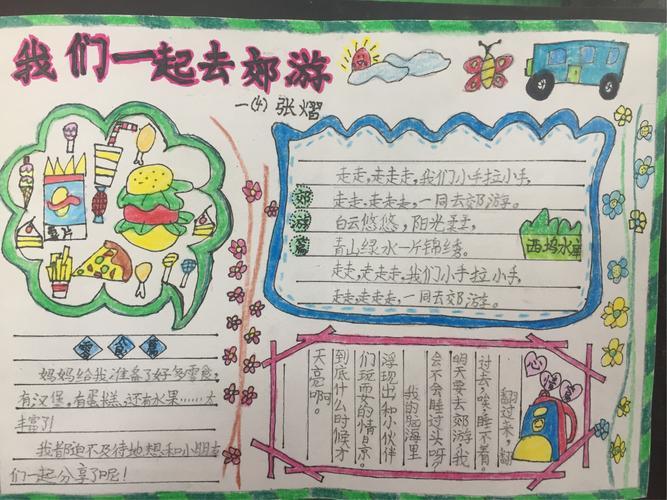 我们一起去郊游
一(4) 张熠
薯片
零食篇
妈妈给我准备了好多零食,
有汉堡,有蛋糕,还有水果……太
丰富了!
我都迫不及待地想和小朋友
们一起分享了呢!
郊游篇
走走,走走走,我们小手拉小手,
走走,走走走,一同去郊游。
白云悠悠,阳光柔柔,
青山绿水一片锦绣。
走走,走走走,我们小手拉小手,
走走,走走走,一同去郊游。
西坞水
心情篇
翻过来,翻
过去,唉,睡不着。
明天要去郊游,我
会不会睡过头呀?
我的脑海里
浮现出和小伙伴
们玩耍的情景。
到底什么时候才
天亮啊。